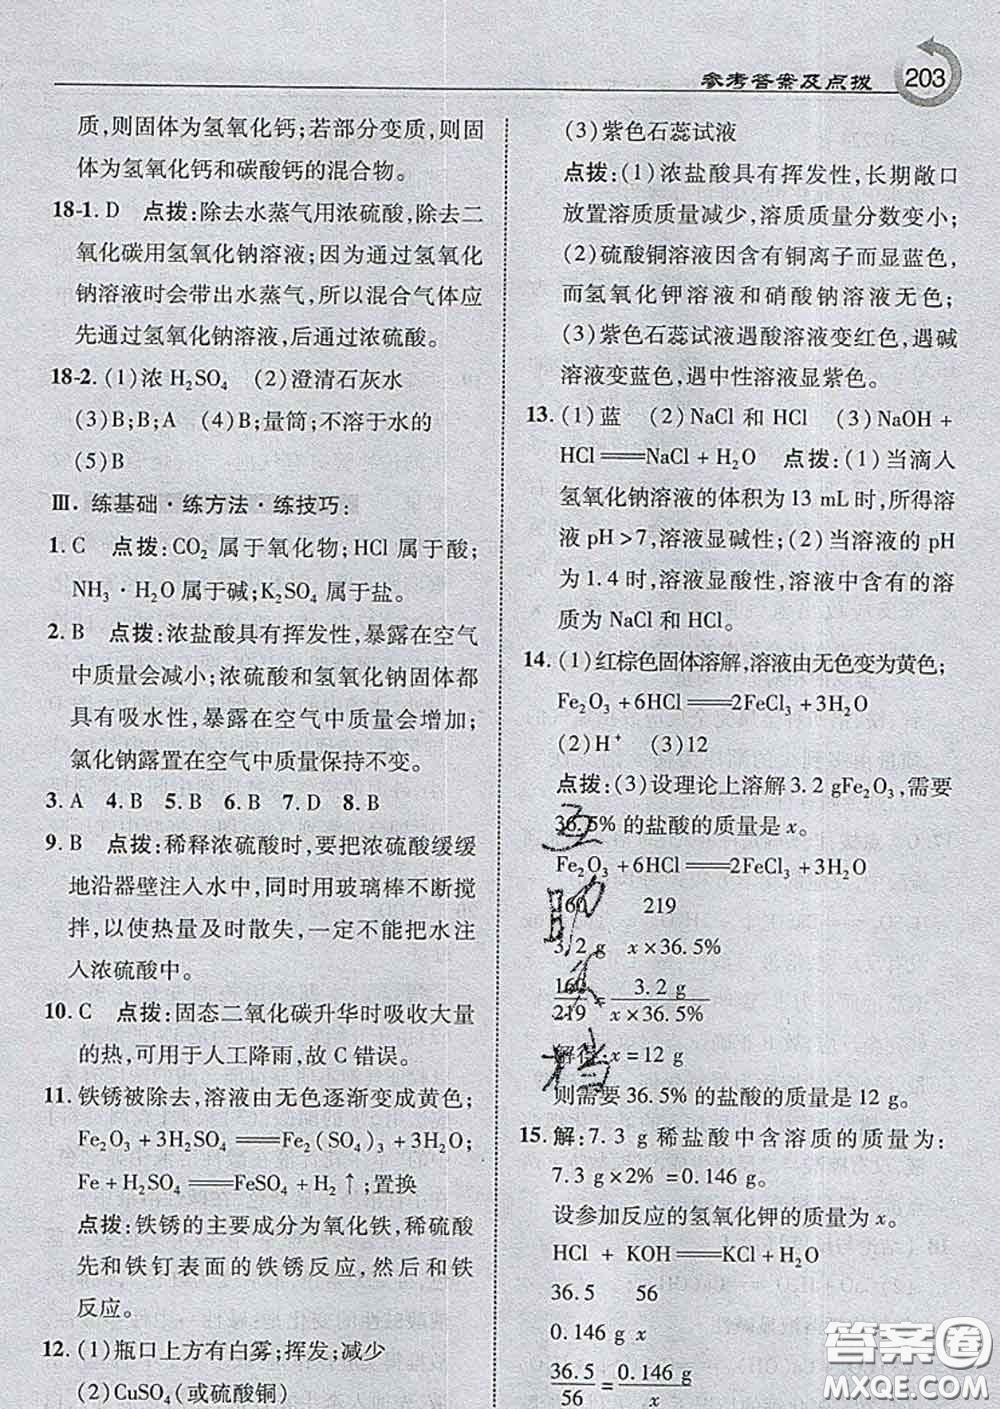 参考答案及点拨
203
质,则固体为氢氧化钙;若部分变质,则固
体为氢氧化钙和碳酸钙的混合物。
18-1. D 点拨:除去水蒸气用浓硫酸,除去二
氧化碳用氢氧化钠溶液;因为通过氢氧化
钠溶液时会带出水蒸气,所以混合气体应
先通过氢氧化钠溶液,后通过浓硫酸。
18-2. (1)浓 H₂SO₄ (2)澄清石灰水
(3)B;B;A (4)B;量筒;不溶于水的
(5)B
Ⅲ. 练基础·练方法·练技巧:
1. C 点拨:CO₂ 属于氧化物;HCl 属于酸;
NH₃·H₂O 属于碱;K₂SO₄ 属于盐。
2. B 点拨:浓盐酸具有挥发性,暴露在空气
中质量会减小;浓硫酸和氢氧化钠固体都
具有吸水性,暴露在空气中质量会增加;
氯化钠露置在空气中质量保持不变。
3. A 4. B 5. B 6. B 7. D 8. B
9. B 点拨:稀释浓硫酸时,要把浓硫酸缓缓
地沿器壁注入水中,同时用玻璃棒不断搅
拌,以使热量及时散失,一定不能把水注
入浓硫酸中。
10. C 点拨:固态二氧化碳升华时吸收大量
的热,可用于人工降雨,故 C 错误。
11. 铁锈被除去,溶液由无色逐渐变成黄色;
Fe₂O₃ + 3H₂SO₄ ═══ Fe₂(SO₄)₃ + 3H₂O;
Fe + H₂SO₄ ═══ FeSO₄ + H₂↑;置换
点拨:铁锈的主要成分为氧化铁,稀硫酸
先和铁钉表面的铁锈反应,然后和铁
反应。
12. (1)瓶口上方有白雾;挥发;减少
(2)CuSO₄(或硫酸铜)
(3)紫色石蕊试液
点拨:(1)浓盐酸具有挥发性,长期敞口
放置溶质质量减少,溶质质量分数变小;
(2)硫酸铜溶液因含有铜离子而显蓝色,
而氢氧化钾溶液和硝酸钠溶液无色;
(3)紫色石蕊试液遇酸溶液变红色,遇碱
溶液变蓝色,遇中性溶液显紫色。
13. (1)蓝 (2)NaCl 和 HCl (3)NaOH +
HCl ═══ NaCl + H₂O 点拨:(1)当滴入
氢氧化钠溶液的体积为 13 mL 时,所得溶
液 pH > 7,溶液显碱性;(2)当溶液的 pH
为 1.4 时,溶液显酸性,溶液中含有的溶
质为 NaCl 和 HCl。
14. (1)红棕色固体溶解,溶液由无色变为黄色;
Fe₂O₃ + 6HCl ═══ 2FeCl₃ + 3H₂O
(2)H⁺ (3)12
点拨:(3)设理论上溶解 3.2 gFe₂O₃,需要
36.5% 的盐酸的质量是 x。
Fe₂O₃ + 6HCl ═══ 2FeCl₃ + 3H₂O
160 219
3.2 g x × 36.5%
160/219 = 3.2 g/(x × 36.5%)
解得:x = 12 g
则需要 36.5% 的盐酸的质量是 12 g。
15. 解:7.3 g 稀盐酸中含溶质的质量为:
7.3 g × 2% = 0.146 g。
设参加反应的氢氧化钾的质量为 x。
HCl + KOH ═══ KCl + H₂O
36.5 56
0.146 g x
36.5/56 = 0.146 g/x
互助文档
答案圈
MXQE.COM